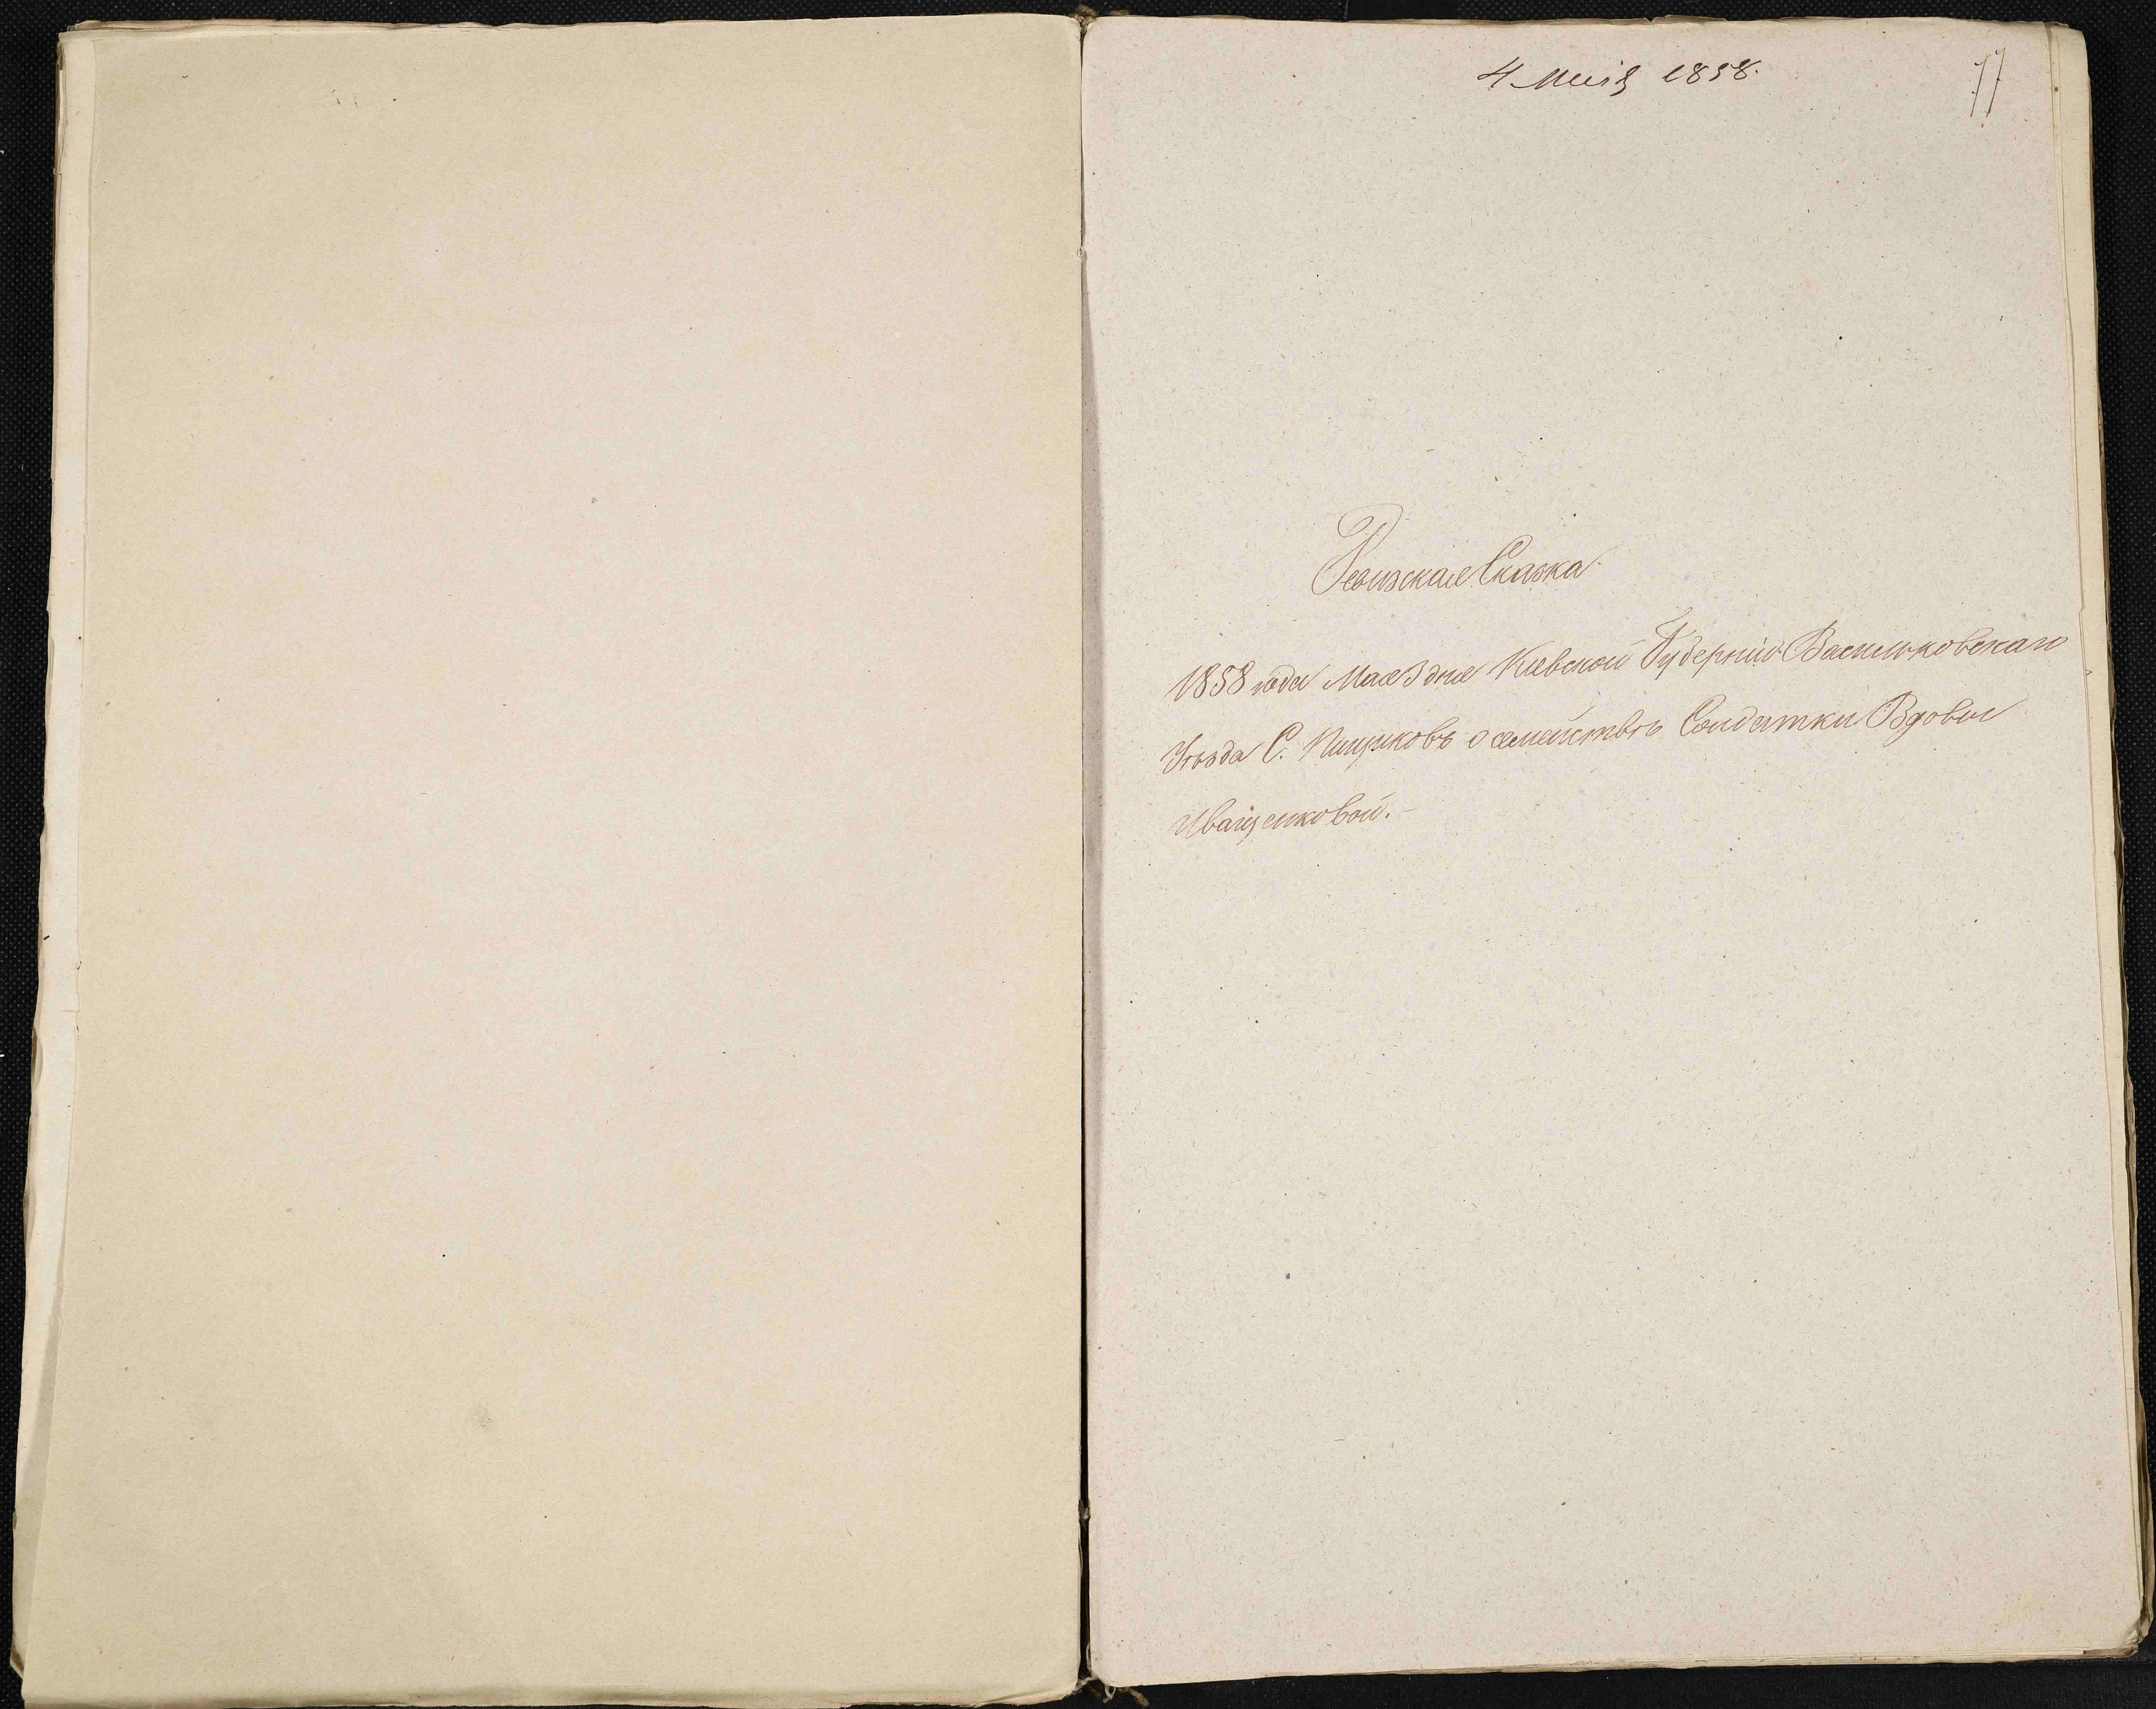 4 Мая 1858.
11
Ревизская Сказка.
1858 года Мая 3 дня Киевской Губерніи Васильковскаго
Уѣзда С. Пищиковъ о семействѣ Солдатки Вдовы
Иващенковой.-